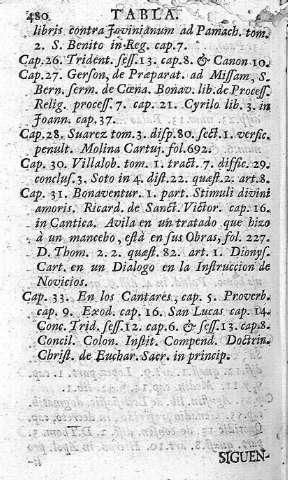 480 TABLA.
libris contra Jovinianum ad Pamach. tom.
2. S. Benito in Reg. cap. 7.
Cap. 26. Trident. sess. 13. cap. 8. & Canon 10.
Cap. 27. Gerson, de Præparat. ad Missam, S.
Bern. serm. de Cœna. Bonav. lib. de Process.
Relig. process. 7. cap. 21. Cyrilo lib. 3. in
Joann. cap. 37.
Cap. 28. Suarez tom. 3. disp. 80. sect. 1. versic.
penult. Molina Cartuj. fol. 692.
Cap. 30. Villalob. tom. 1. tract. 7. diffic. 29.
conclus. 3. Soto in 4. dist. 22. quæst. 2. art. 8.
Cap. 31. Bonaventur. 1. part. Stimuli divini
amoris. Ricard. de Sanct. Victor. cap. 16.
in Cantica. Avila en un tratado que hizo
à un mancebo, està en sus Obras, fol. 227.
D. Thom. 2. 2. quæst. 82. art. 1. Dionys.
Cart. en un Dialogo en la Instruccion de
Novicios.
Cap. 33. En los Cantares, cap. 5. Proverb.
cap. 9. Exod. cap. 16. San Lucas cap. 14.
Conc. Trid. sess. 12. cap. 6. & sess. 13. cap. 8.
Concil. Colon. Instit. Compend. Doctrin.
Christ. de Euchar. Sacr. in princip.
SIGUEN-